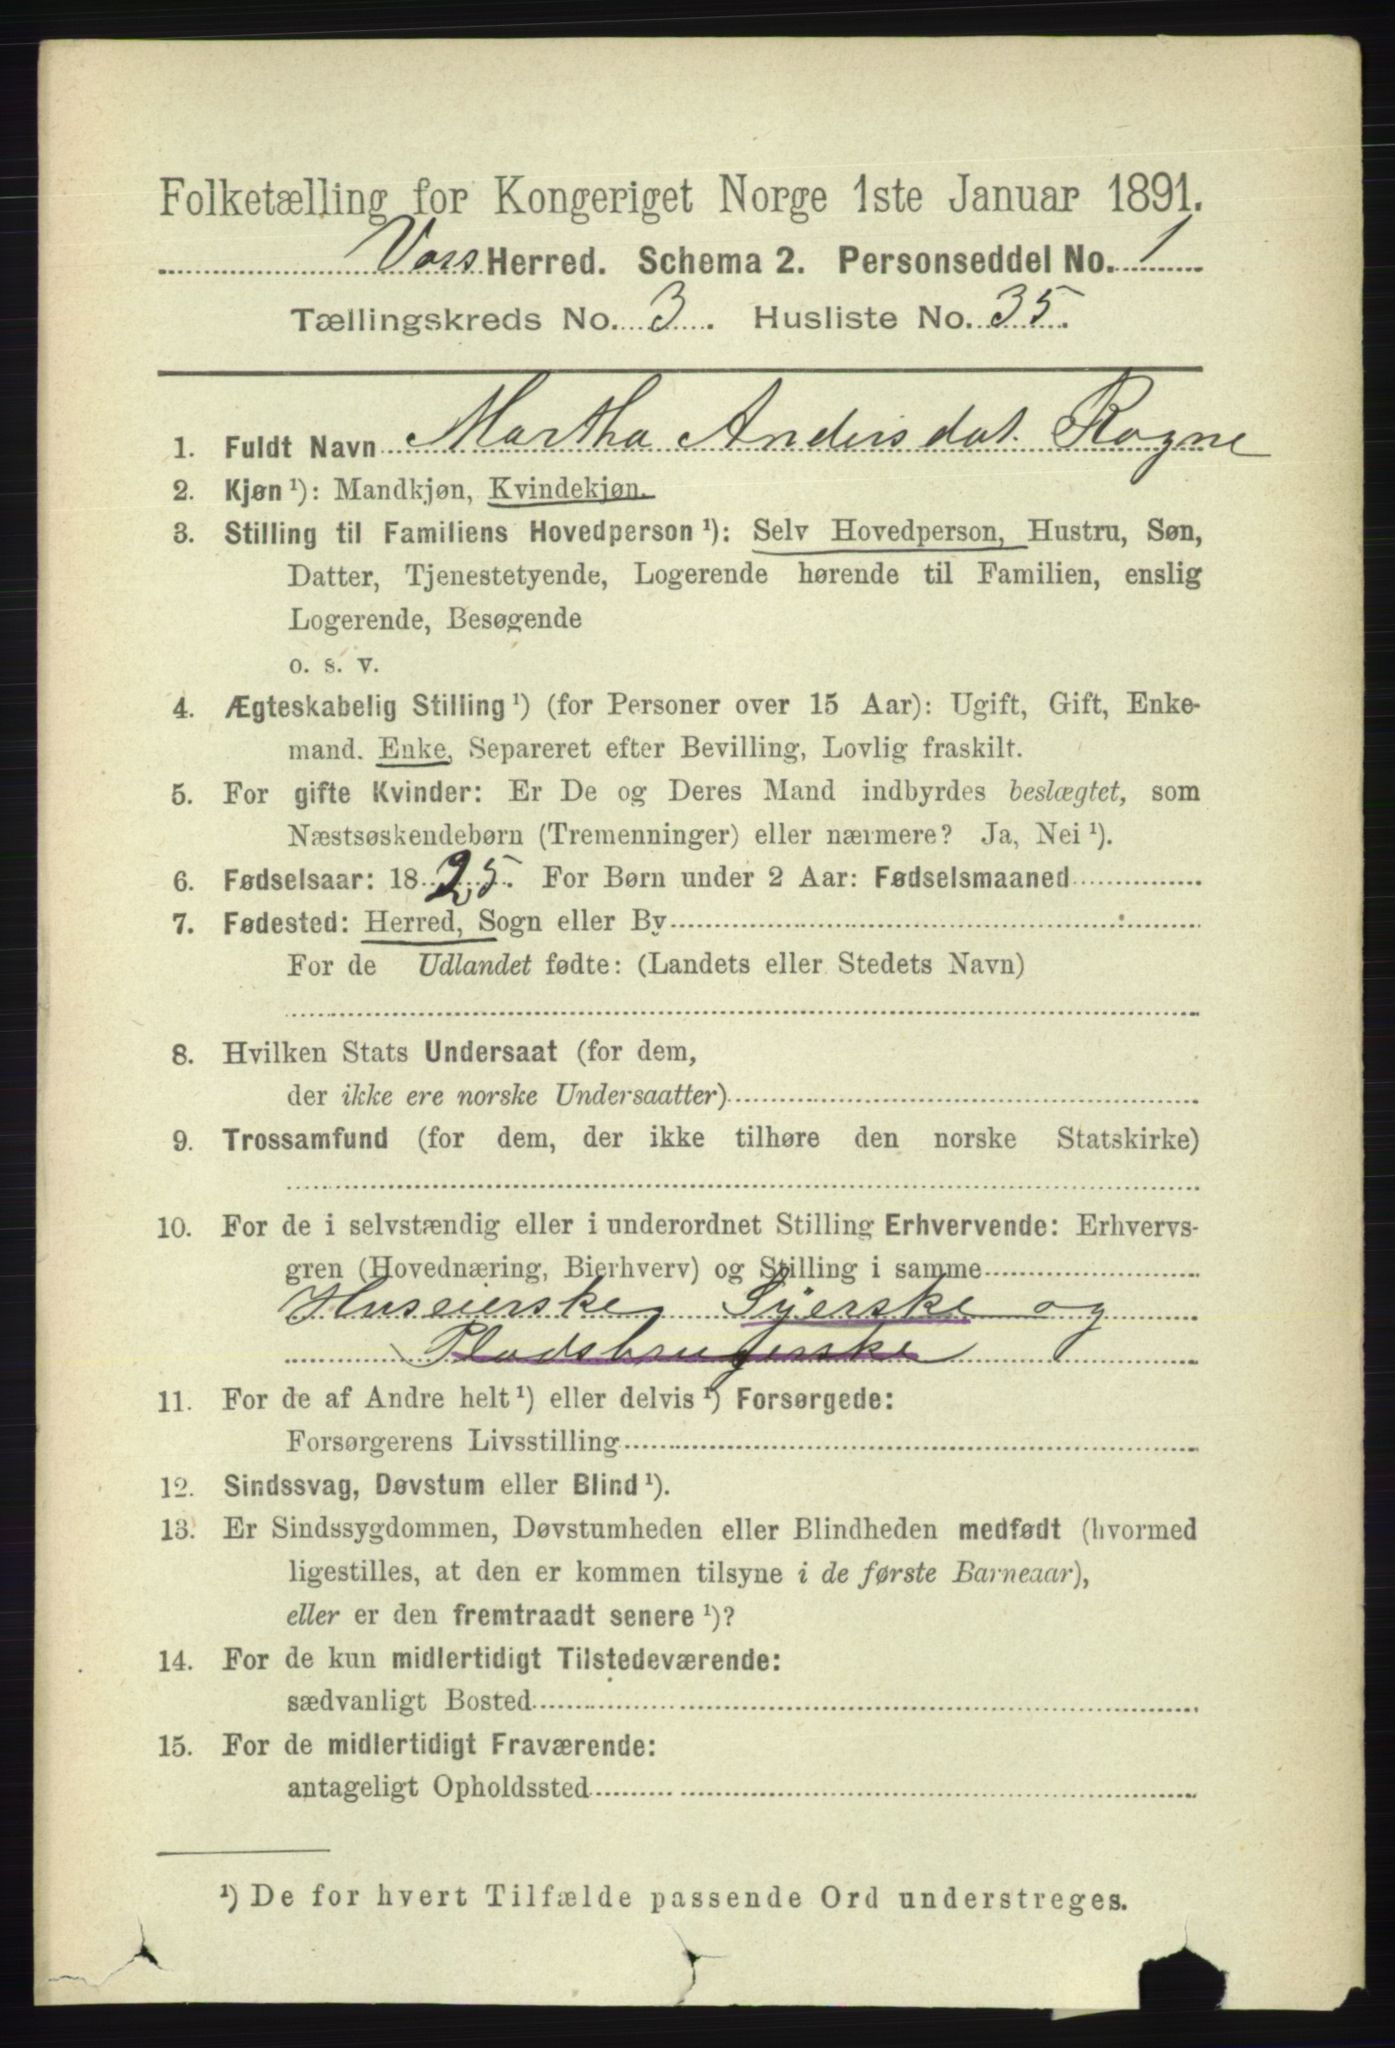 Folketælling for Kongeriget Norge 1ste Januar 1891.
Vors Herred. Schema 2. Personseddel No. 1
Tællingskreds No. 3. Husliste No. 35.
1. Fuldt Navn Martha Andersdat. Rogne
2. Kjøn ¹): Mandkjøn, Kvindekjøn.
3. Stilling til Familiens Hovedperson ¹): Selv Hovedperson, Hustru, Søn,
Datter, Tjenestetyende, Logerende hørende til Familien, enslig
Logerende, Besøgende
o. s. v.
4. Ægteskabelig Stilling ¹) (for Personer over 15 Aar): Ugift, Gift, Enke-
mand. Enke, Separeret efter Bevilling, Lovlig fraskilt.
5. For gifte Kvinder: Er De og Deres Mand indbyrdes beslægtet, som
Næstsøskendebørn (Tremenninger) eller nærmere? Ja, Nei ¹).
6. Fødselsaar: 1825. For Børn under 2 Aar: Fødselsmaaned
7. Fødested: Herred, Sogn eller By
For de Udlandet fødte: (Landets eller Stedets Navn)
8. Hvilken Stats Undersaat (for dem,
der ikke ere norske Undersaatter)
9. Trossamfund (for dem, der ikke tilhøre den norske Statskirke)
10. For de i selvstændig eller i underordnet Stilling Erhvervende: Erhvervs-
gren (Hovednæring, Bierhverv) og Stilling i samme
Huseierske, Syerske og
Pladsbrugerske
11. For de af Andre helt ¹) eller delvis ¹) Forsørgede:
Forsørgerens Livsstilling
12. Sindssvag, Døvstum eller Blind ¹).
13. Er Sindssygdommen, Døvstumheden eller Blindheden medfødt (hvormed
ligestilles, at den er kommen tilsyne i de første Barneaar),
eller er den fremtraadt senere ¹)?
14. For de kun midlertidigt Tilstedeværende:
sædvanligt Bosted
15. For de midlertidigt Fraværende:
antageligt Opholdssted
¹) De for hvert Tilfælde passende Ord understreges.